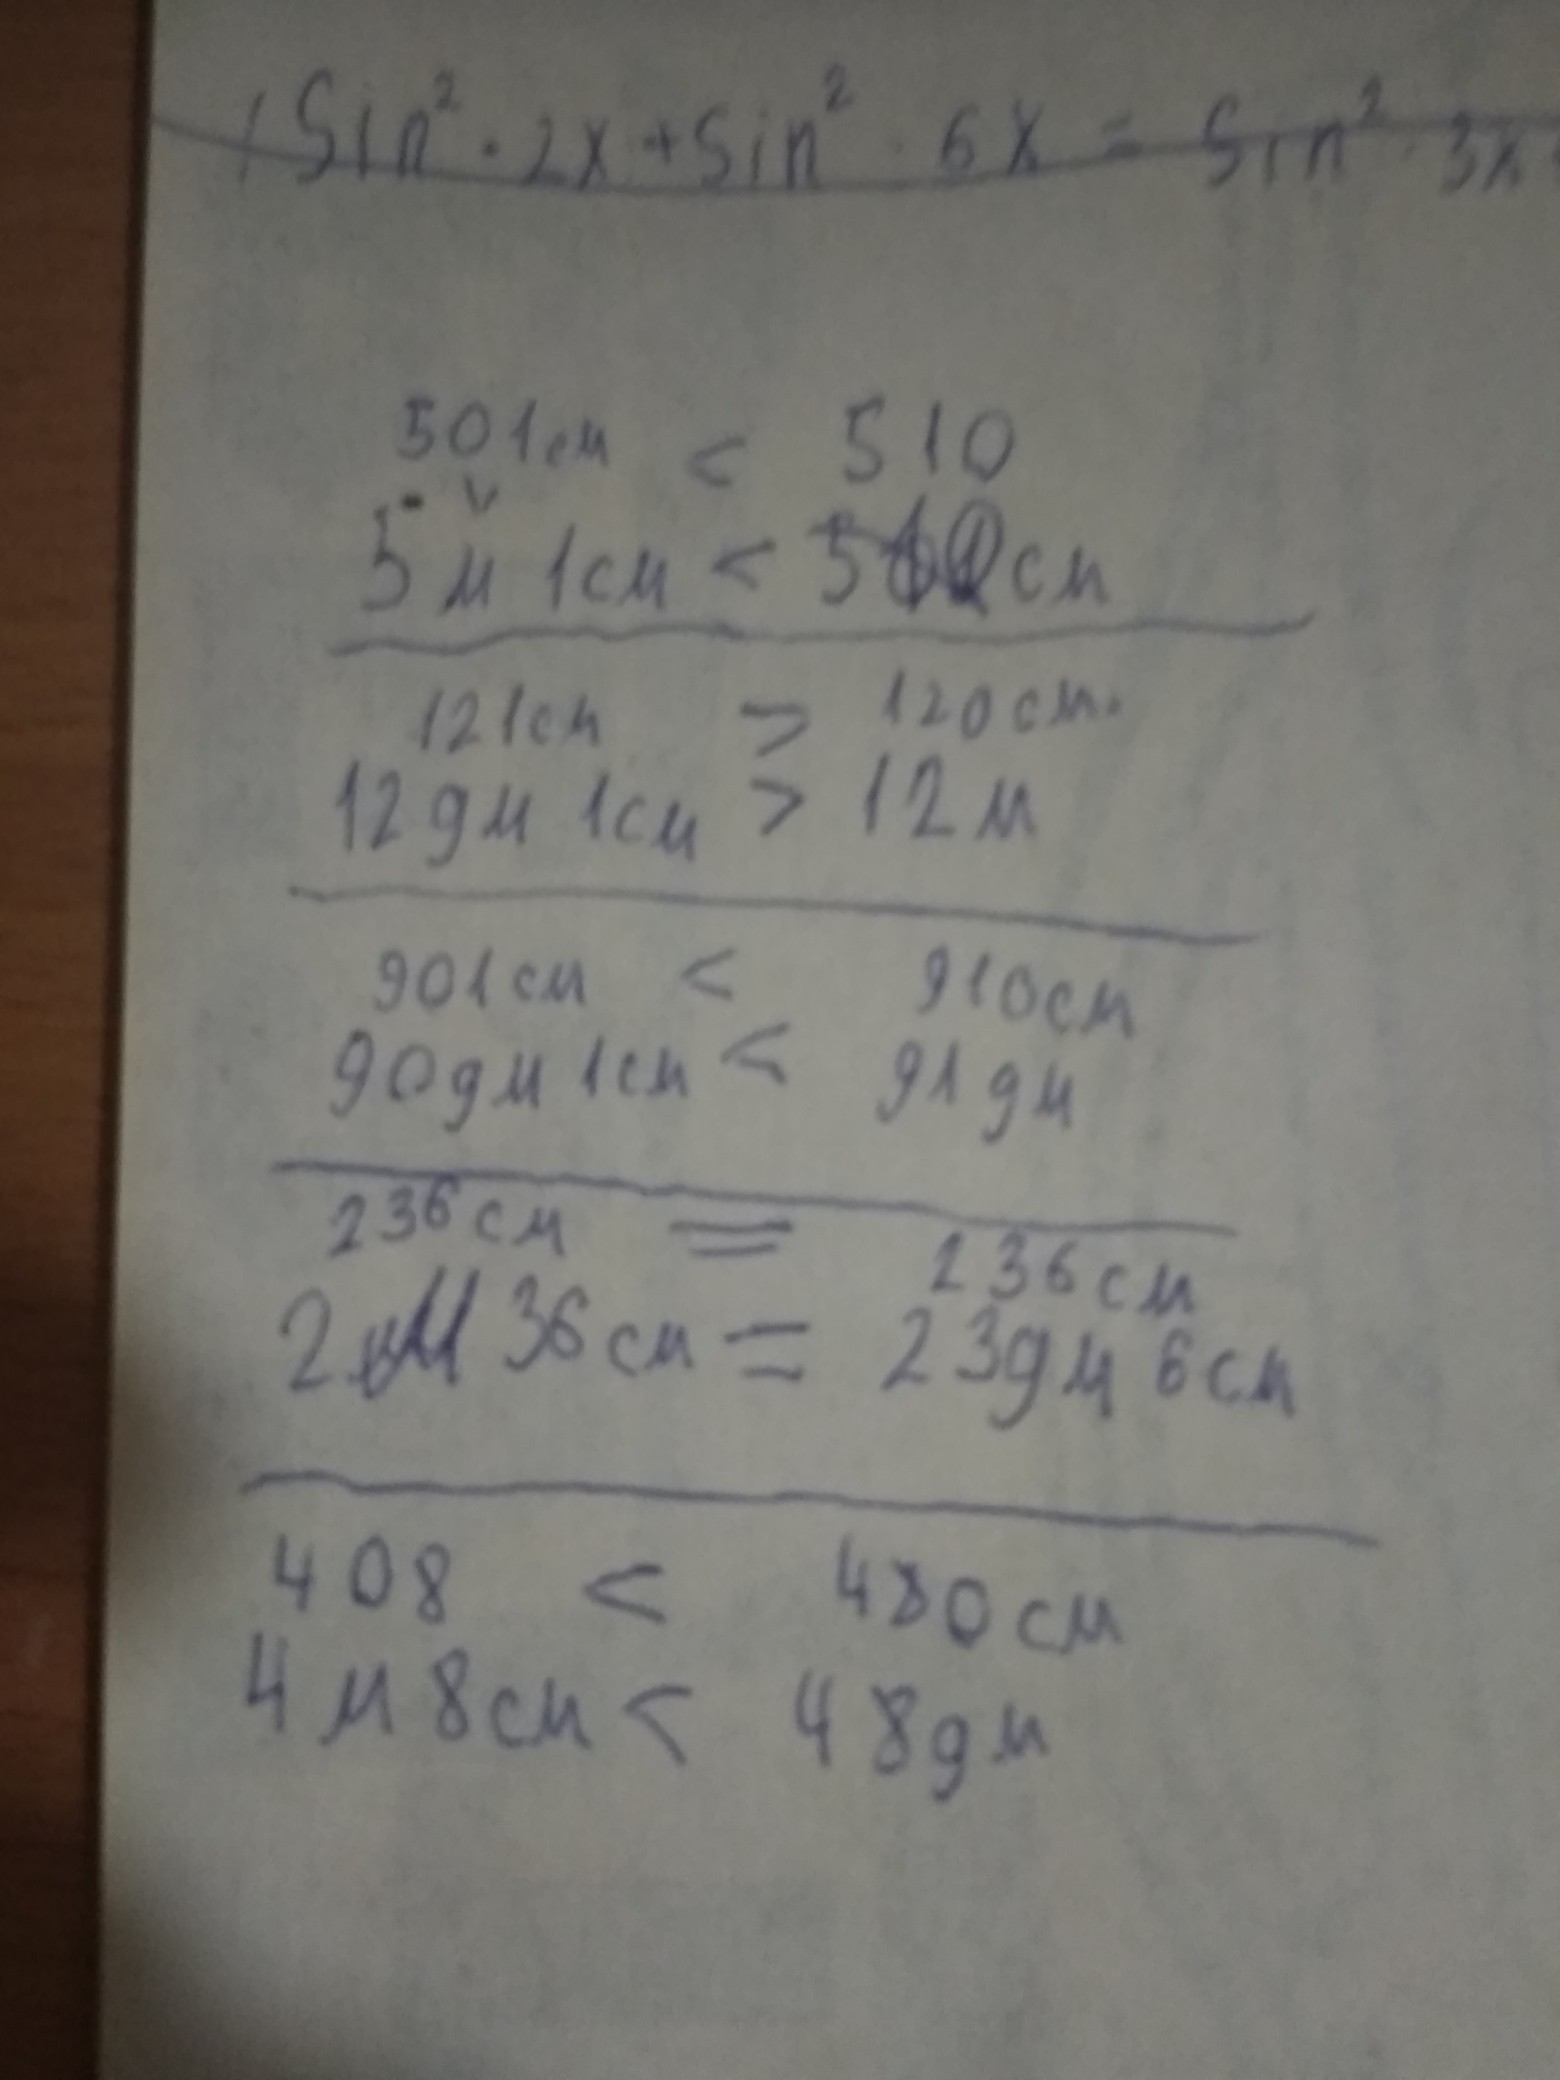 Sin² · 2x + Sin² · 6x = Sin² · 3x
501см < 510
5м 1см < 510см
121см > 120см.
12дм 1см > 12м
901см < 910см
90дм 1см < 91дм
236см = 236см
2м 36см = 23дм 6см
408 < 480см
4м 8см < 48дм